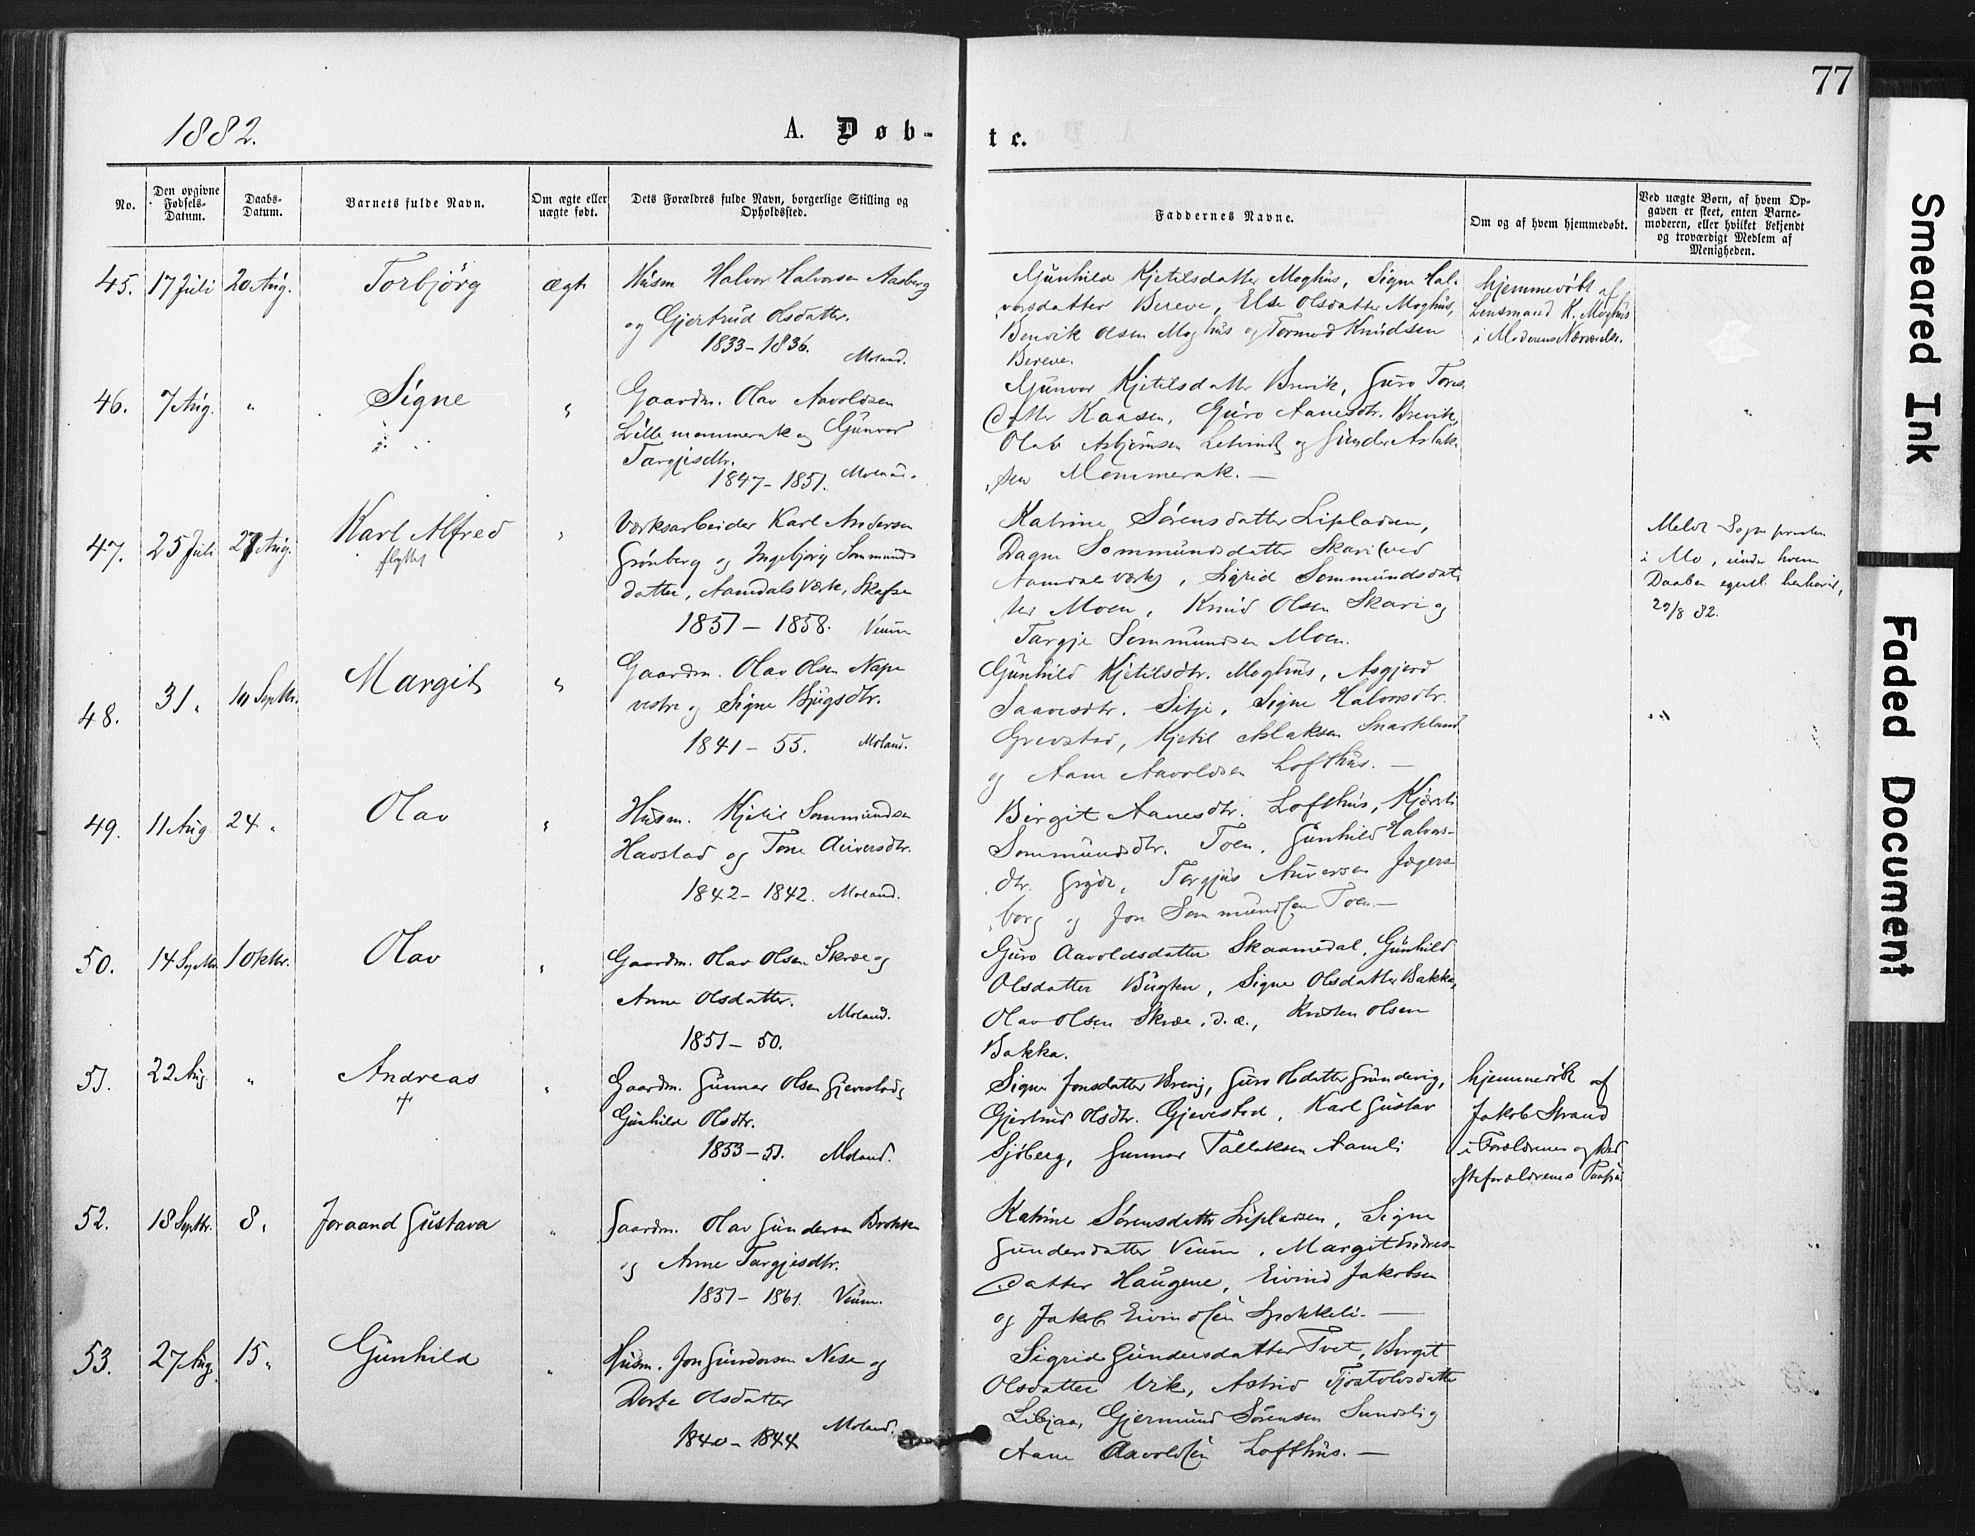 77
1882.
A. Døb-
te.
No.
Den opgivne Fødsels-Datum.
Daabs-Datum.
Barnets fulde Navn.
Om ægte eller uægte født.
Dets Forældres fulde Navn, borgerlige Stilling og Opholdssted.
Faddernes Navne.
Om og af hvem hjemmedøbt.
Ved uægte Børn, af hvem Opgaven er skeet, enten Barnemoderen, eller hvilket bekjendt og troværdigt Medlem af Menigheden.
45. 17 Juli 20 Aug. Torbjörg ægte
Husm Halvor Halvorsen Aasberg
og Gjertrud Olsdatter.
1833-1836. Moland.
Gunhild Kjetilsdatter Moghus, Signe Hal-
vorsdatter Bereve, Else Olsdatter Moghus,
Olsen Moghus og Tormod Knudsen
Bereve.
hjemmedöbt af
Lensmand K. Moghus
i Moderens Nærværelse.
46. 7 Aug. " Signe "
Gaardm. Olav Aavoldsen
Lille mommerak og Gunvor
Targjisdtr.
1847-1851. Moland.
Gunvor Kjetilsdatter Brevik, Guro Tores
datter Kaasen, Guro Aanesdtr. Brevik,
Olav Asbjörnsen og Gunder Aslak-
sen Mommerak. —
47. 25 Juli 27 Aug. Karl Alfred "
flyttet
Værksarbeider Karl Andersen
Grönberg og Ingebjörg Sommunds
datter, Aamdals Værk, Skafse
1851-1858. Veum
Katrine Sörensdatter Lipladsen,
Dagne Sommundsdatter Skari ved
Aamdals værk, Sigrid Sommundsdat
ter Moen, Knud Olsen Skari og
Targje Sommundsen Moen.
Meldt Sognepresten
i Mo, under hvem
Daaben egentl. henhörer,
29/8 82.
48. 31 " 10 Septbr. Margit "
Gaardm. Olav Olsen Nape
vestre og Signe Bjugsdtr.
1841-55. Moland.
Gunhild Kjetilsdtr. Moghus, Asgjerd
Saavesdtr. Sitje, Signe Halvorsdtr.
Grevstad, Kjetil Aslaksen
og Aane Aavoldsen Lofthus. —
49. 11 Aug. 24 " Olav "
Husm. Kjetil Sommundsen
Havstad og Tone Auversdtr.
1842-1842. Moland.
Birgit Aanesdtr. Lofthus, Kjersti
Sommundsdtr. Toen, Gunhild Halvors-
dtr. Gryde, Targjus Auversen Jægers
borg og Jon Sommundsen Toen. —
50. 14 Septbr. 1 Oktbr. Olav "
Gaardm. Olav Olsen Skræe og
Anne Olsdatter.
Moland.
1851-50.
Guro Aavoldsdatter Skaamedal, Gunhild
Olsdatter Bugten, Signe Olsdatter Bakka,
Olav Olsen Skræe, d.æ., Kristen Olsen
Bakka.
51. 22 Aug " Andreas "
†
Gaardm. Gunnar Olsen Gjevestad og
Gunhild Olsdtr.
1853-51. Moland.
Signe Jonsdatter Brevig, Guro Olsdatter Grundevig,
Gjertrud Olsdtr. Gjevestad, Karl Gustav
Sjöberg, Gunnar Tallaksen Aamli
hjemmedöbt af
Jakob Strand
i Forældrenes og Bed
steforældrenes
52. 18 Septbr. 8 " Joraand Gustava "
Gaardm. Olav Gundersen Brokken
og Anne Targjesdtr.
1837-1861. Veum.
Katrine Sörensdatter Lipladsen, Signe
Gundersdatter Veum, Margit Endres-
datter Haugene, Eivind Jakobsen
og Jakob Eivindsen Spokkeli. —
53. 27 Aug. 15 " Gunhild "
Husm. Jon Gundersen Nese og
Dorte Olsdatter
1840-1844 Moland.
Sigrid Gundersdatter Tvet, Birgit
Olsdatter Vik, Astrid Tjostolvsdatter
Libjaa, Gjermund Sörensen Sundsli og
Aane Aavoldsen Lofthus. —
Smeared Ink
Faded Document